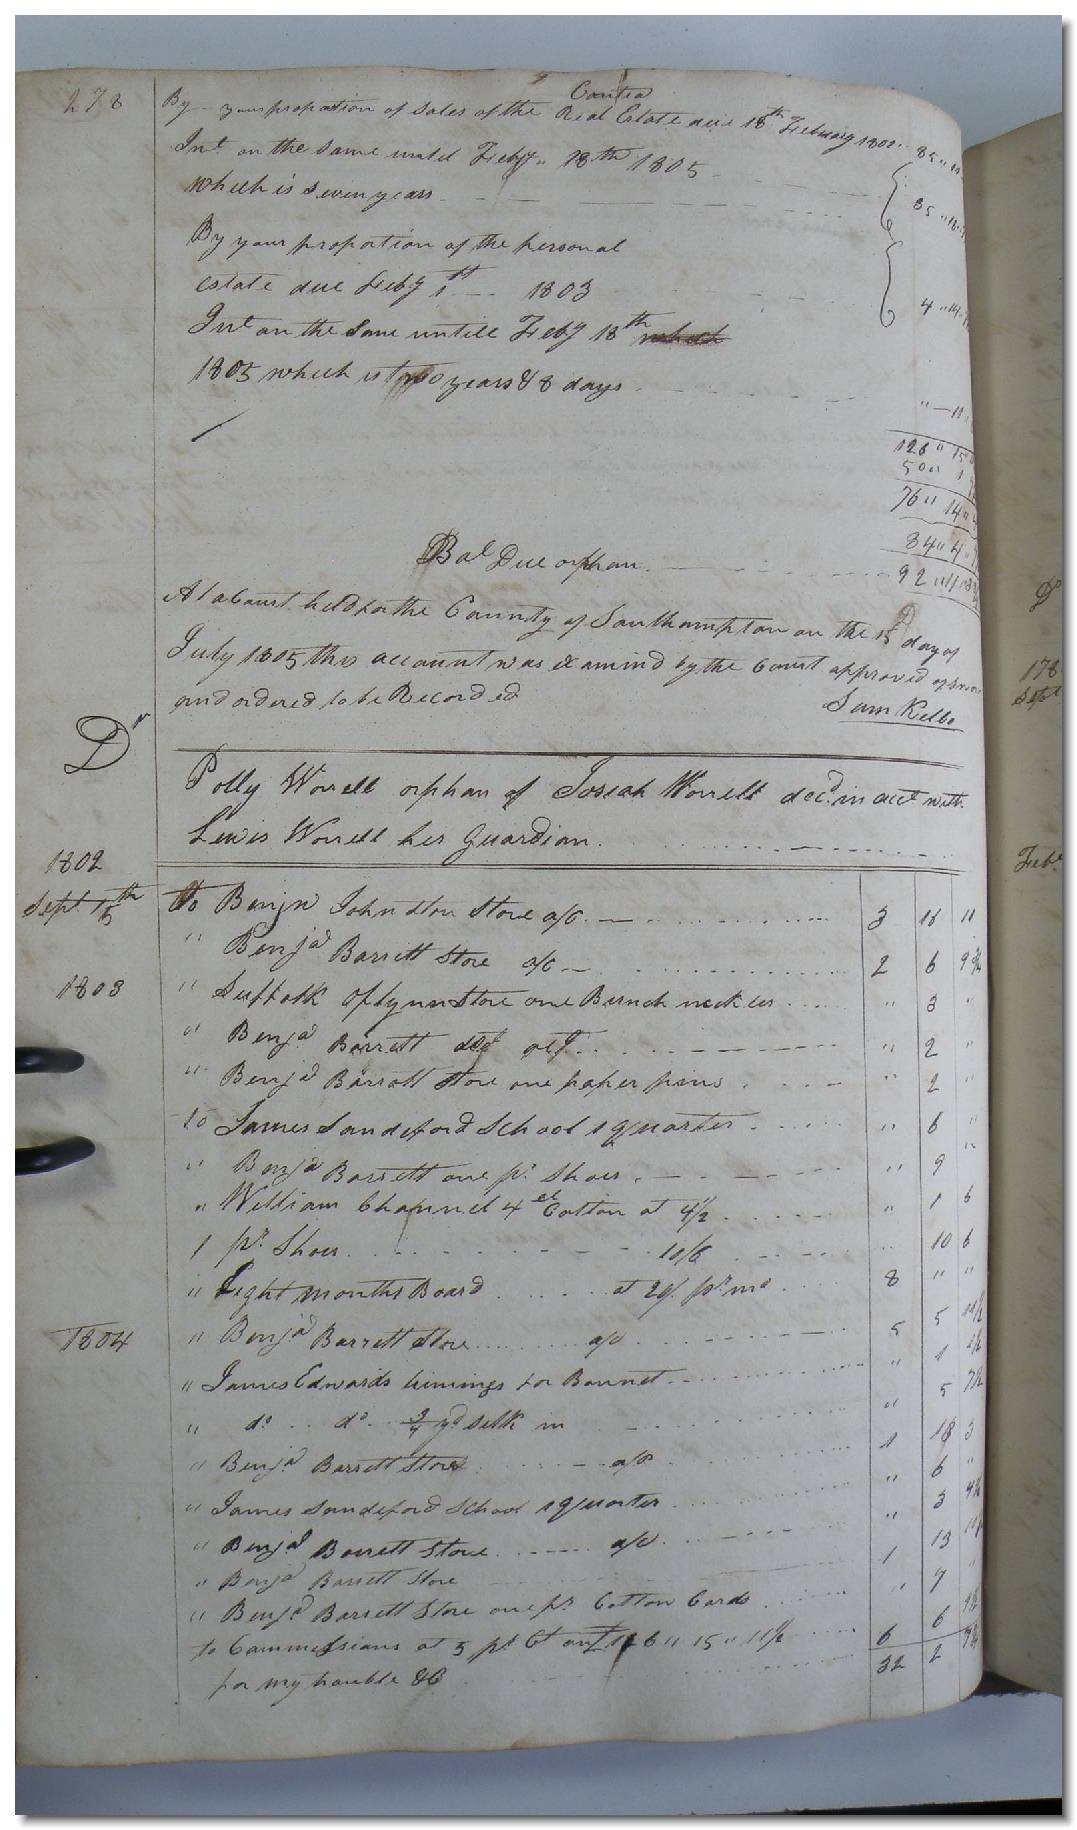 278
Contra
By your proportion of Sales of the Real Estate due 18th February 1800 .. 85 "
Int. on the same until Feby " 18th 1805
which is seven years 35 "
By your proportion of the personal
estate due Feby 1st 1803 4 " 14
Int on the Same untill Feby 18th which
1805 which is two years & 8 days " — 11
126 " 15
50 " 1
76 " 14 "
Bal Due orphan 92 " 11
At a Court held for the County of Southampton on the 15 day of
July 1805 this account was Examind by the Court approved of
and ordered to be Recorded
Sam Kello
Dr
Polly Worrell orphan of Josiah Worrell decd. in acct with
Lewis Worrell her Guardian
1802
Sept. 15th to Benjn Johnston Store a/c 3 18 11
" Benja Barrett Store a/c 2 6 9 3/4
1803 " Suffolk Store one Bunch " 3 "
" Benja Barrett " 2 "
" Benja Barrott Store one paper pins " 2 "
to James Sandeford School 1 quarter " 6 "
" Benja Barrett one pr. Shoes " 9 "
" William Channel 4 Cotton at 4 1/2 " 1 6
1 pr. Shoes 10/6 " 10 6
" Eight months Board at 20/ pr mo 8 " "
1804 " Benja Barrett Store a/c 5 5
" James Edwards trimings for Bonnet " 1
" do do 3/4 yd silk in " 5 7 1/2
" Benja. Barrett Store a/c 1 18 3
" James Sandeford School 1 quarter " 6 "
" Benja Barrett Store a/c " 3 4 1/2
" Benja Barrett Store 1 13
" Benja Barrett Store one pr Cotton Cards " 7 "
to Commissions at 5 pr Ct on £126 " 15 " 11 1/2 6 6
for my trouble &C 32 2
Dr
178
Sept
Feb